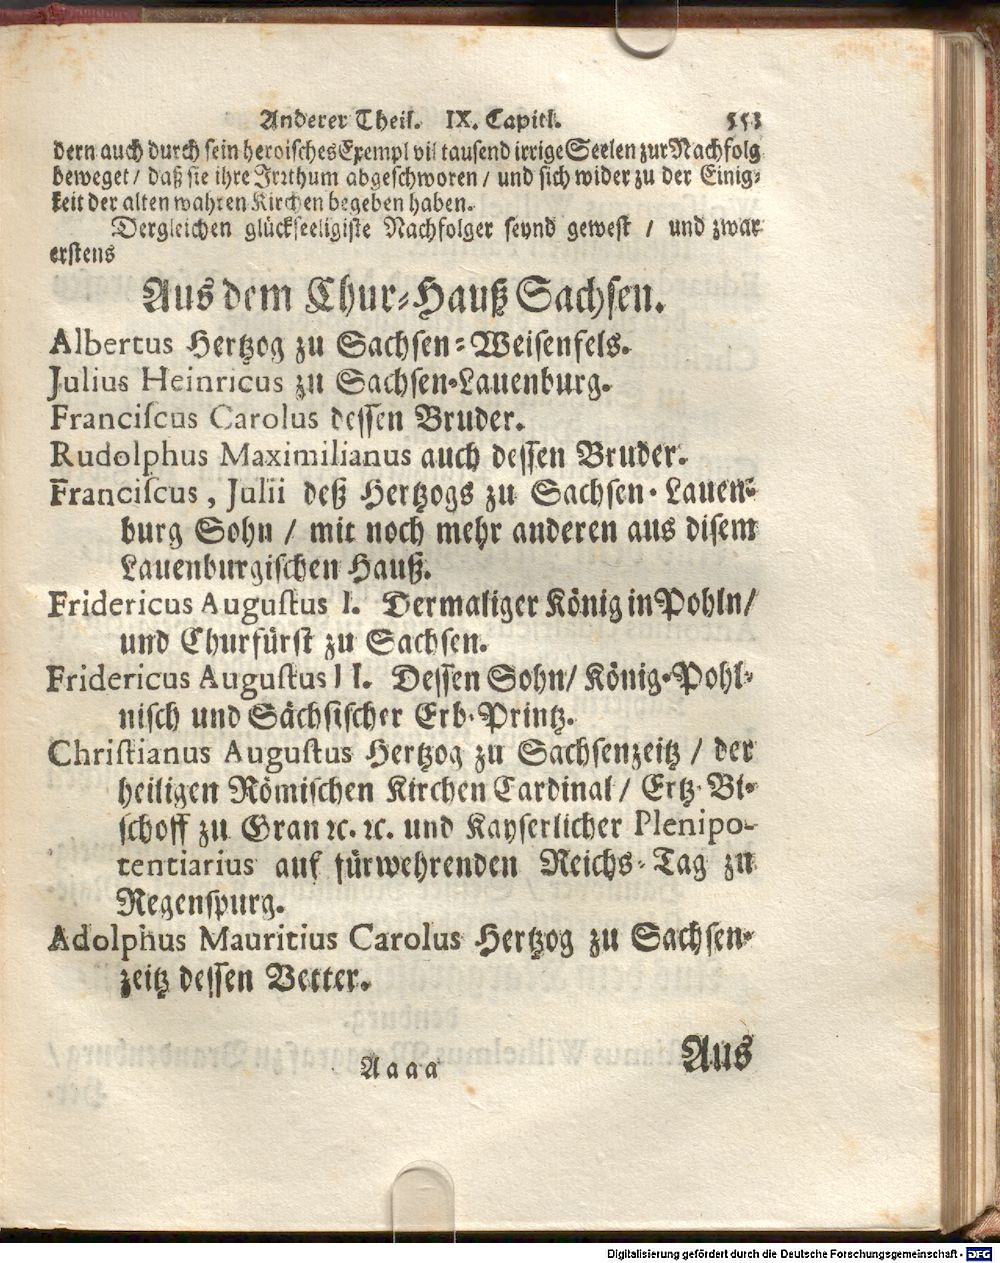 Anderer Theil. IX. Capitl. 553
dern auch durch sein heroisches Exempl vil tausend irrige Seelen zur Nachfolg
beweget / daß sie ihre Irrthum abgeschworen / und sich wider zu der Einig-
keit der alten wahren Kirchen begeben haben.
Dergleichen glückseeligiste Nachfolger seynd gewest / und zwar
erstens
Aus dem Chur-Hauß Sachsen.
Albertus Hertzog zu Sachsen-Weisenfels.
Julius Heinricus zu Sachsen-Lauenburg.
Franciscus Carolus dessen Bruder.
Rudolphus Maximilianus auch dessen Bruder.
Franciscus, Julii deß Hertzogs zu Sachsen-Lauen-
burg Sohn / mit noch mehr anderen aus disem
Lauenburgischen Hauß.
Fridericus Augustus I. Dermaliger König in Pohln /
und Churfürst zu Sachsen.
Fridericus Augustus II. Dessen Sohn / König-Pohl-
nisch und Sächsischer Erb-Printz.
Christianus Augustus Hertzog zu Sachsenzeitz / der
heiligen Römischen Kirchen Cardinal / Ertz-Bi-
schoff zu Gran ꝛc. ꝛc. und Kayserlicher Plenipo-
tentiarius auf fürwehrenden Reichs-Tag zu
Regenspurg.
Adolphus Mauritius Carolus Hertzog zu Sachsen-
zeitz dessen Vetter.
Aaaa Aus
Digitalisierung gefördert durch die Deutsche Forschungsgemeinschaft - DFG